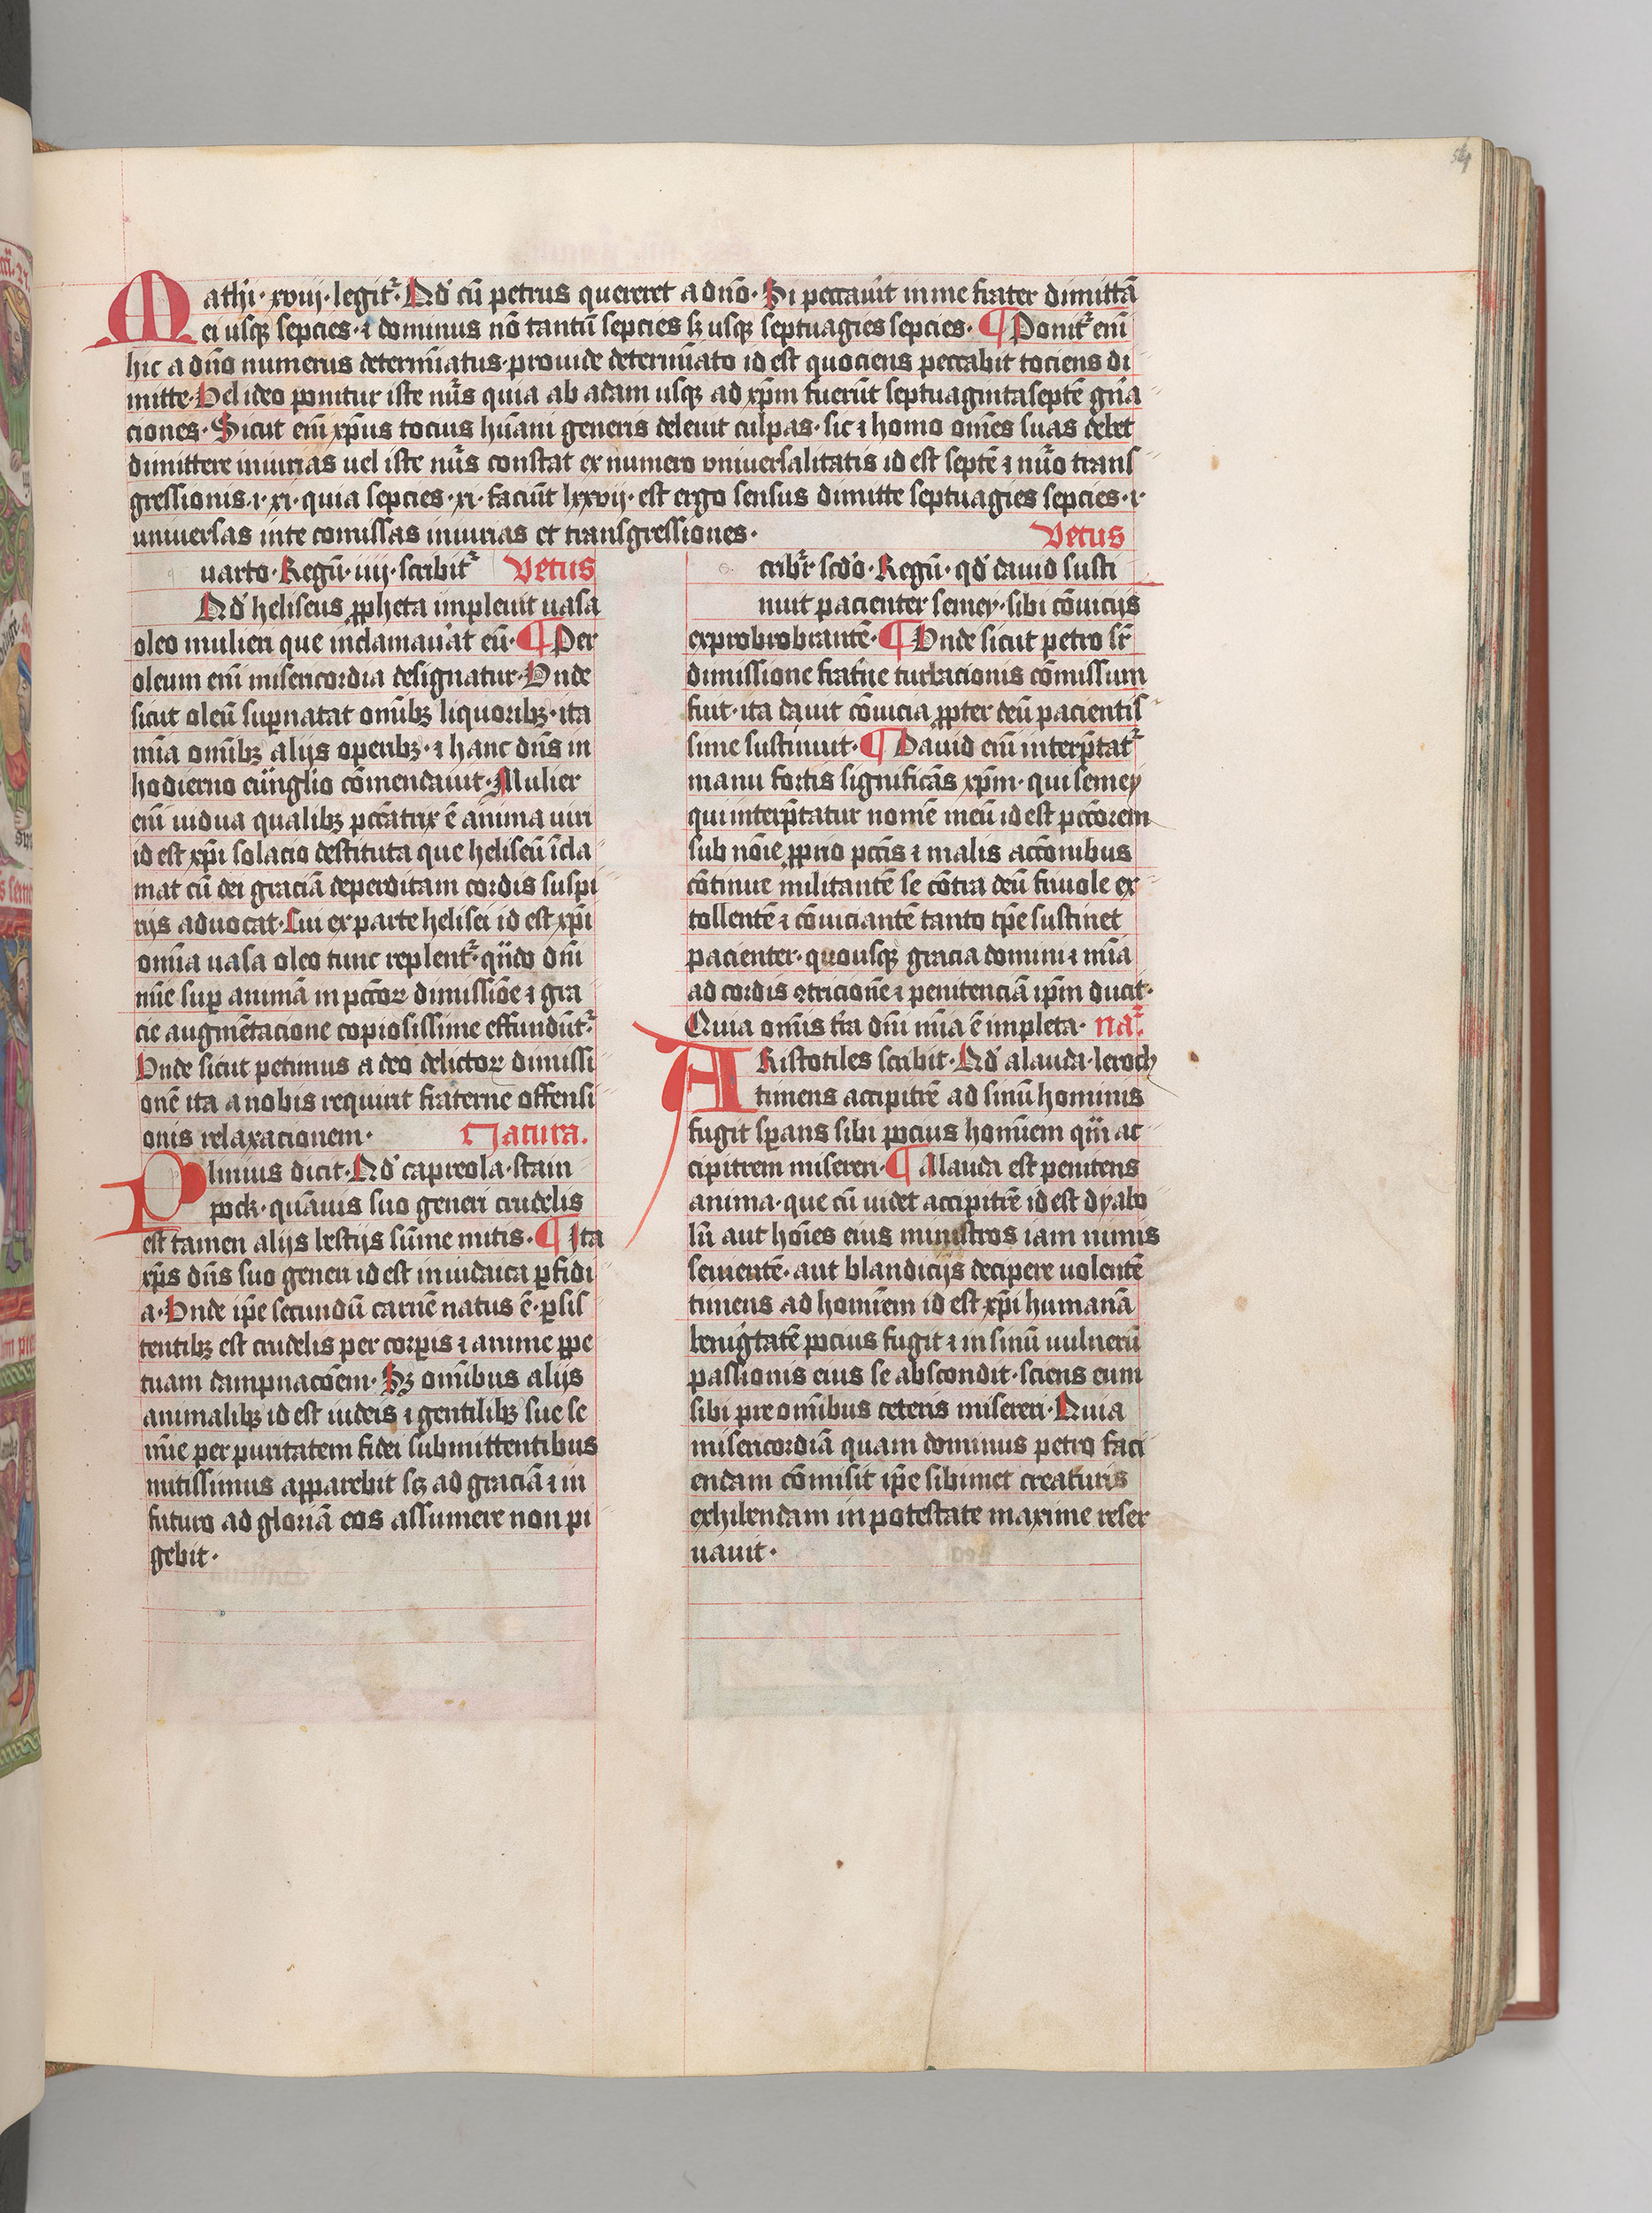 54
Mathi · xviij · legit᷑ · Qd̕ cū petrus quereret a dn̄o · Si peccauit in me frater dimittā
ei usq̨ sepcies · ⁊ dominus nō tantū sepcies sȝ usq̨ septuagies sepcies · ¶ Ponit᷑ em̄
hic a dn̄o numerus determīatus · prouide determīato id est quociens peccabit tociens di
mitte · Vel ideo ponitur iste nūs quia ab adam usq̨ ad xp̄m fuerūt septuagintaseptē gn̄a
ciones · Sicut em̄ xp̄us tocius hūani generis deleuit culpas · sic ⁊ homo om̄es suas debet
dimittere iniurias uel iste nūs constat ex numero vniuersalitatis id est septē ⁊ nūo trans
gressionis · i · xi · quia sepcies · xi · faciūt lxxvij · est ergo sensus dimitte septuagies sepcies · i ·
uniuersas inte comissas iniurias et transgressiones ·
Vetus
uarto · Regū · iiij · scribit᷑ Vetus
Qd̕ heliseus ꝓpheta impleuit uasa
oleo mulieri que inclamauāt eū · ¶ Per
oleum em̄ misericordia designatur · Vnde
sicut oleū suꝑnatat om̄ibȝ liquoribȝ · ita
mīa om̄ibȝ alijs operibȝ · ⁊ hanc dn̄s in
hodierno euāglio cōmendauit · Mulier
em̄ uidua qualibȝ pcc̄atrix ē anima uiri
id est xp̄i solacio destituta que heliseū īcla
mat cū dei graciā deperditam cordis suspi
rijs aduocat · Cui ex parte helisei id est xp̄i
om̄ia uasa oleo tunc replent᷑ · qn̄do dn̄i
mīe suꝑ animā in pcc̄oꝝ dimissiōe ⁊ gra
cie augmētacione copiosissime effundūt᷑ ·
Vnde sicut petimus a deo delictoꝝ dimissi
onē ita a nobis requirit fraterne offensi
onis relaxacionem · Natura.
Plinius dicit · Qd̕ capreola · stain
pock · quāuis suo generi crudelis
est tamen alijs bestijs sūme mitis · ¶ Ita
xp̄s dn̄s suo generi id est in iudaica ꝑfidi
a · Vnde ip̄e secundū carnē natus ē · ꝑsis
tentibȝ est crudelis per corꝑis ⁊ anime ꝑpe
tuam dampnacōem · Sȝ om̄ibus alijs
animalibȝ id est iudeis ⁊ gentilibȝ sue se
mīe per puritatem fidei submittentibus
mitissimus apparebit sȝ ad graciā ⁊ in
futuro ad gloriā eos assumere non pi
gebit ·
cribr̄ scd̄o · Regū · qd̕ dauid susti
nuit pacienter semey · sibi cōuicijs
exprobrobrantē · ¶ Vnde sicut petro sr̄
dimissione frat̄ne turbacionis cōmissum
fuit · ita dauit cōuicia ꝓpter deū pacientis
sime sustinuit · ¶ Dauid em̄ interp̄tat᷑
manu fortis significās xp̄m · qui semey
qui interp̄tatur nomē meū id est pcc̄orem
sub nōie ꝓprio pcc̄is ⁊ malis accōnibus
cōtinue militantē se cōtra deū friuole ex
tollentē ⁊ cōuiciantē tanto tp̄e sustinet
pacienter · quousq̨ gracia domini ⁊ mīa
ad cordis ꝯtricionē ⁊ penitenciā ip̄m ducit ·
Quia om̄is t̄ra dn̄i mīa ē impleta · na᷑.
ARistotiles scribit · Qd̕ alauda · leroch
timens accipitrē ad sinū hominis
fugit sꝑans sibi pocius homīem qm̄ ac
cipitrem misereri · ¶ Alauda est penitens
anima · que cū uidet accipitrē id est dyabo
lū aut hoīes eius ministros iam nimis
seuientē · aut blandicijs decipere uolentē
timens ad homīem id est xp̄i humanā
beniḡtatē pocius fugit ⁊ in sinū uulnerū
passionis eius se abscondit · sciens eum
sibi pre om̄ibus ceteris misereri · Quia
misericordiā quam dominus petro faci
endam cōmisit ip̄e sibimet creaturis
exhibendam in potestate maxime reser
uauit ·